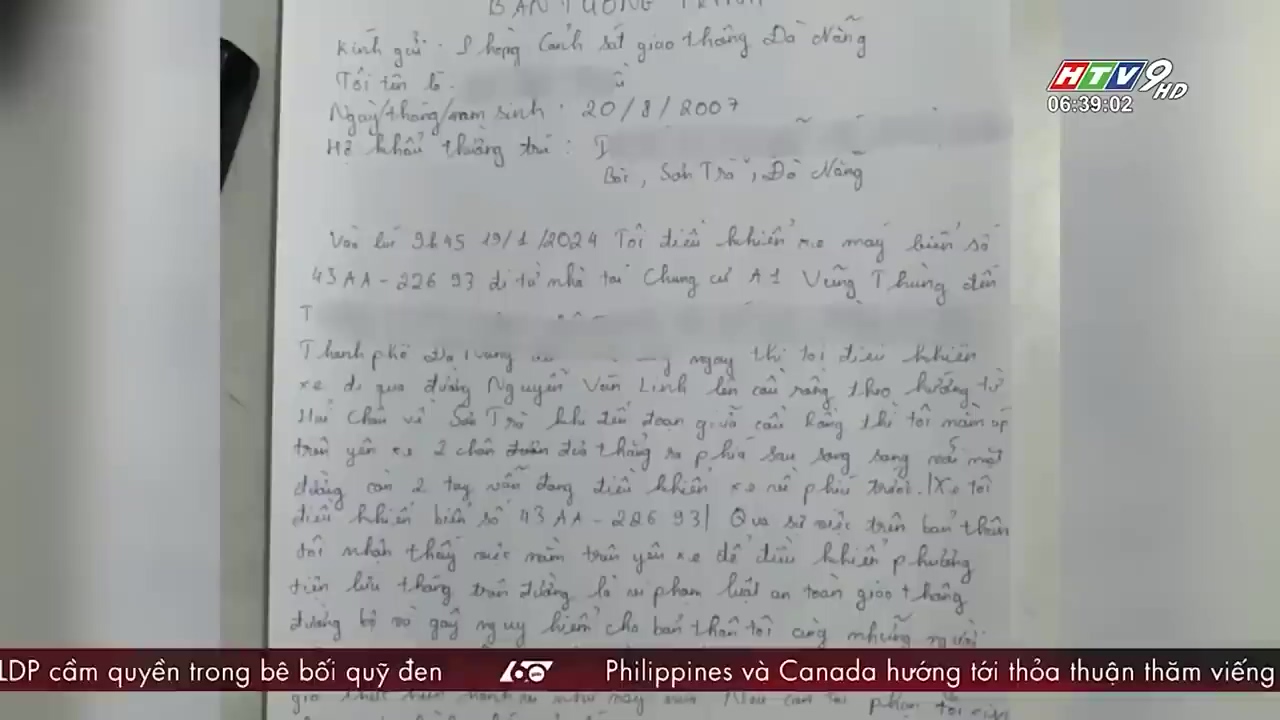 BẢN TƯỜNG TRÌNH
Kính gửi: Phòng Cảnh sát giao thông Đà Nẵng
HTV9 HD
06:39:02
Tôi tên là
Ngày/tháng/năm sinh: 20/8/2007
Hộ khẩu thường trú:
Sơn Trà, Đà Nẵng
Vào lúc 9h45 19/1/2024 Tôi điều khiển xe máy biển số
43AA-226 93 đi từ nhà tại Chung cư A1 Vũng Thùng đến
Thành phố Đà Nẵng ngay thì tôi điều khiển
xe đi qua đường Nguyễn Văn Linh lên cầu rồng theo hướng từ
Hải Châu về Sơn Trà khi đến đoạn giữa cầu Rồng thì tôi nằm úp
trên yên xe 2 chân duỗi thẳng ra phía sau song song với mặt
đường còn 2 tay vẫn đang điều khiển xe về phía trước. (Xe tôi
điều khiển biển số 43AA-226 93) Qua sự việc trên bản thân
tôi nhận thấy việc nằm trên yên xe để điều khiển phương
tiện lưu thông trên đường là vi phạm luật an toàn giao thông
đường bộ và gây nguy hiểm cho bản thân tôi cũng những người
LDP cầm quyền trong bê bối quỹ đen 60 Philippines và Canada hướng tới thỏa thuận thăm viếng